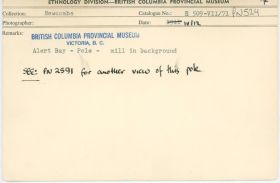 ETHNOLOGY DIVISION—BRITISH COLUMBIA PROVINCIAL MUSEUM
Collection: Newcombe Catalogue No.: E 509-VII/71 PN524
Photographer: Date: 1912
Remarks: BRITISH COLUMBIA PROVINCIAL MUSEUM
VICTORIA, B. C.
Alert Bay - Pole - mill in background
SEE: PN 2591 for another view of this pole